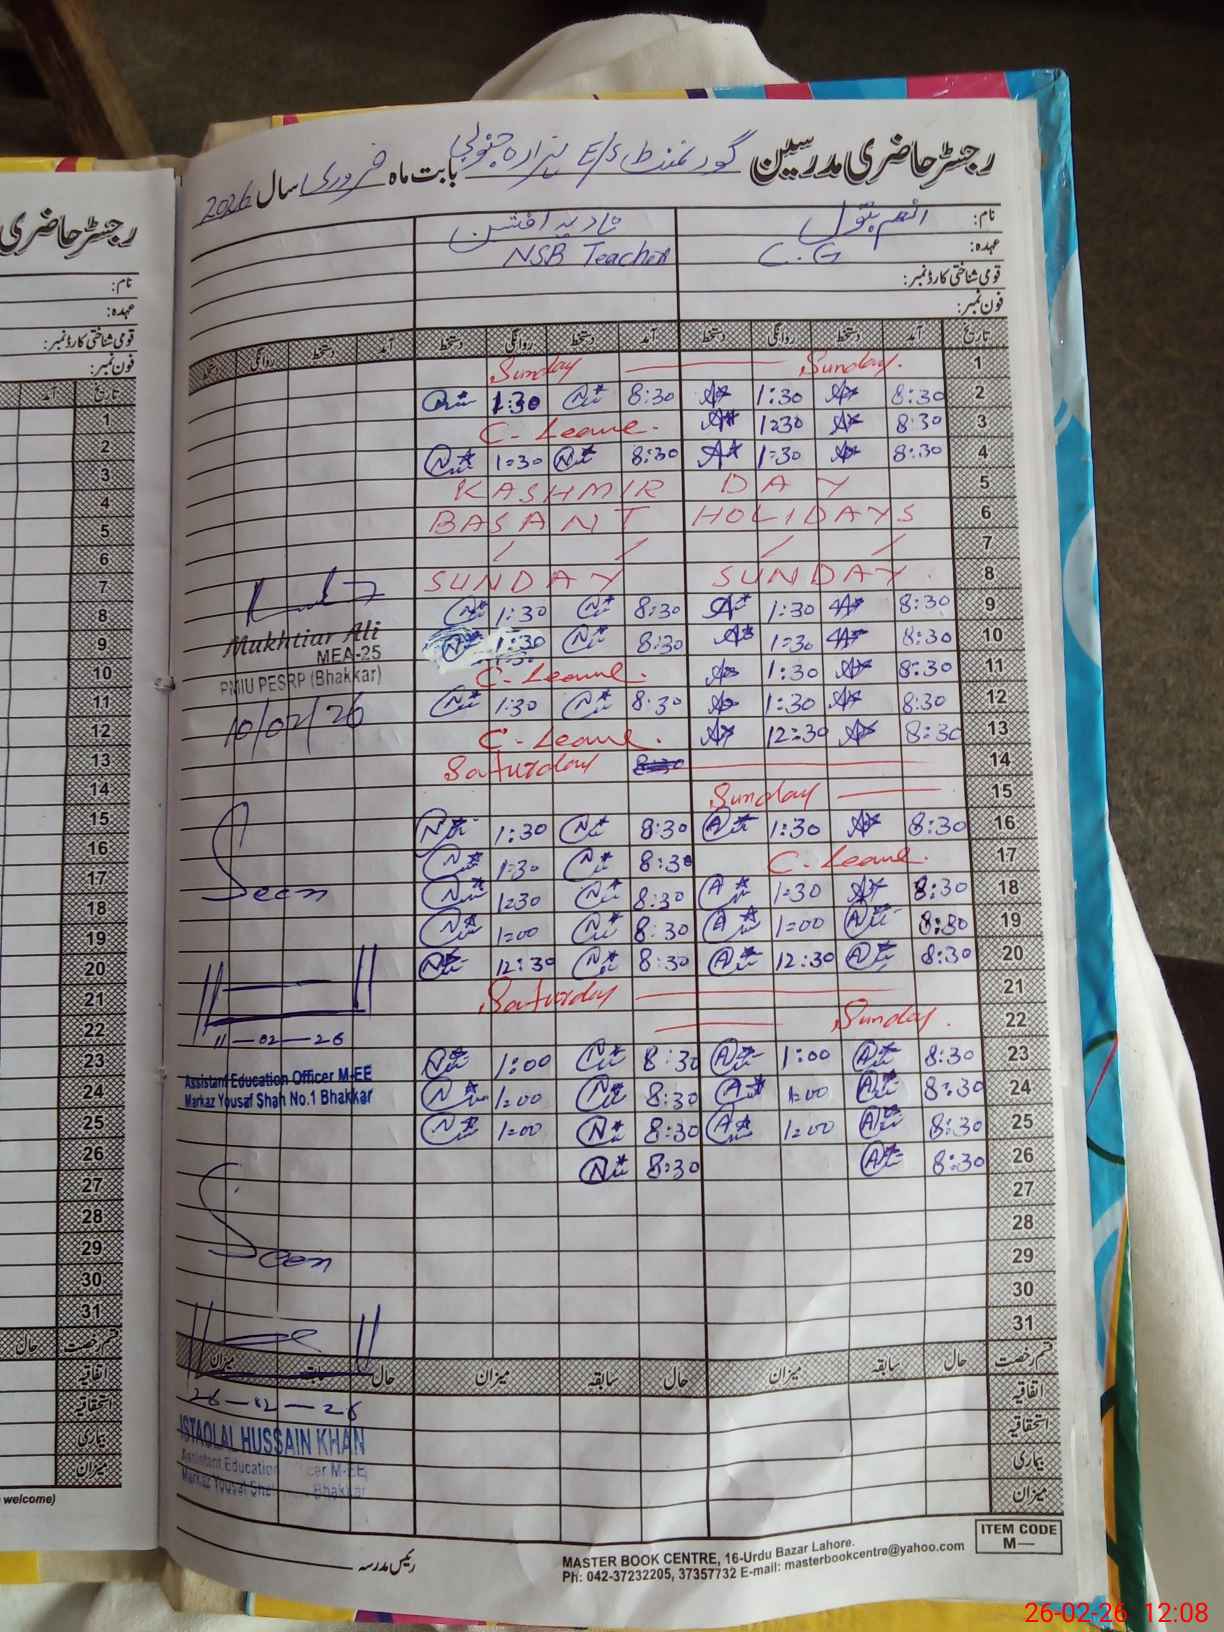 رجسٹر حاضری مدرسین گورنمنٹ E/S ہزارہ جنوبی بابت ماہ فروری سال 2026
نام: انعم بتول نادیہ افشین
عہدہ: C.G NSB Teacher
قومی شناختی کارڈ نمبر:
فون نمبر:
تاریخ آمد دستخط روانگی دستخط آمد دستخط روانگی دستخط آمد دستخط روانگی دستخط
1 Sunday. Sunday
2 8:30 1:30 8:30 1:30
3 8:30 1230 C-Leave.
4 8:30 1:30 8:30 1:30
5 KASHMIR DAY
6 BASANT HOLIDAYS
7
8 SUNDAY SUNDAY.
9 8:30 1:30 8:30 1:30
10 8:30 1:30 8:30 1:30
11 8:30 1:30 C-Leave.
12 8:30 1:30 8:30 1:30
13 8:30 12:30 C-Leave.
14 Saturday 8:30
15 Sunday
16 8:30 1:30 8:30 1:30
17 C-Leave. 8:30 1:30
18 8:30 1:30 8:30 1230
19 8:30 1:00 8:30 1:00
20 8:30 12:30 8:30 12:30
21 Saturday
22 Sunday.
23 8:30 1:00 8:30 1:00
24 8:30 1:00 8:30 1:00
25 8:30 1:00 8:30 1:00
26 8:30 8:30
27
28
29
30
31
Mukhtiar Ali
MEA-25
PMIU PESRP (Bhakkar)
10/02/26
Seen
11-02-26
Assistant Education Officer M-EE
Markaz Yousaf Shah No.1 Bhakkar
Seen
قسم رخصت حال سابقہ میزان حال سابقہ میزان حال سابقہ میزان
اتفاقیہ
استحقاقیہ
بیماری
میزان
26-02-26
ISTAQLAL HUSSAIN KHAN
Assistant Education Officer M-EE
Markaz Yousaf Shah Bhakkar
رئیس مدرسہ
MASTER BOOK CENTRE, 16-Urdu Bazar Lahore.
Ph: 042-37232205, 37357732 E-mail: masterbookcentre@yahoo.com
ITEM CODE
M—
رجسٹر حاضری
نام:
عہدہ:
قومی شناختی کارڈ نمبر:
فون نمبر:
تاریخ آمد
1
2
3
4
5
6
7
8
9
10
11
12
13
14
15
16
17
18
19
20
21
22
23
24
25
26
27
28
29
30
31
قسم رخصت حال
اتفاقیہ
استحقاقیہ
بیماری
میزان
welcome)
26-02-26 12:08